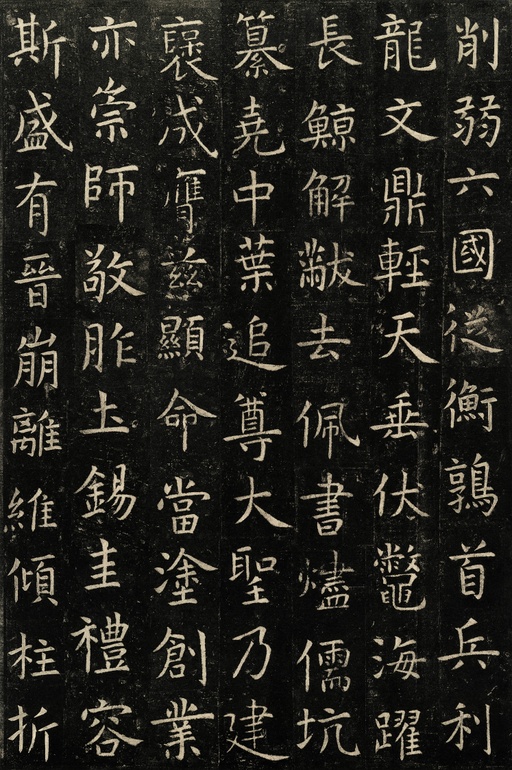 削弱六國従衡鶉首兵利
龍文鼎輕天垂伏鼈海躍
長鯨解黻去佩書燼儒坑
纂堯中葉追尊大聖乃建
襃成膺茲顯命當塗創業
亦崇師敬胙土錫圭禮容
斯盛有晉崩離維傾柱折